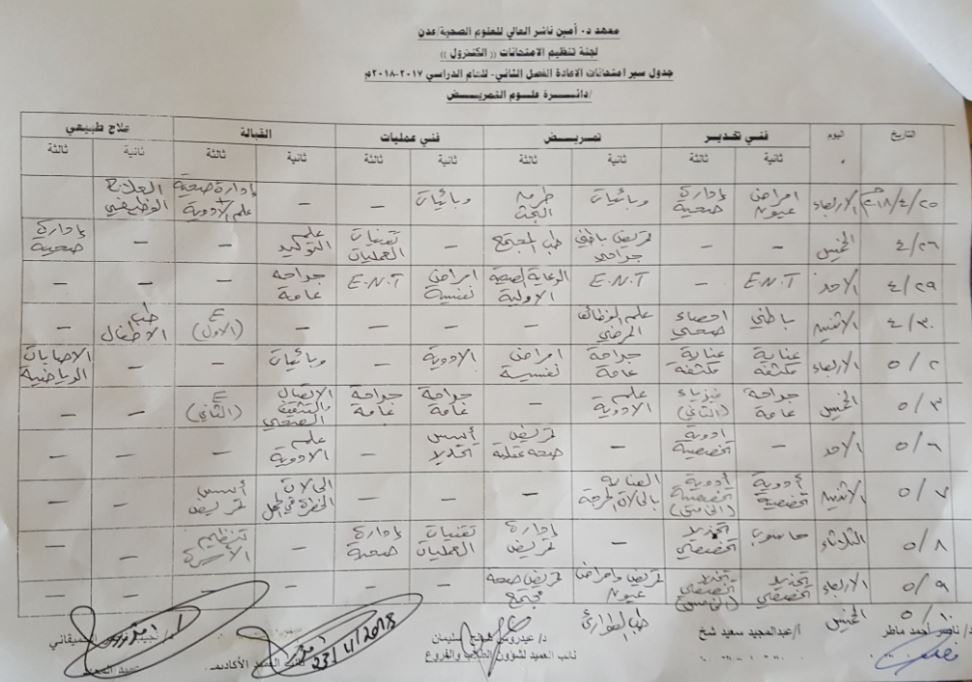 معهد د. أمين ناشر العالي للعلوم الصحية/عدن
لجنة تنظيم الامتحانات (( الكنترول ))
جدول سير امتحانات الاعادة الفصل الثاني- للعام الدراسي ٢٠١٧-٢٠١٨م
/دائرة علوم التمريض
التاريخ اليوم فني تخدير تمريض فني عمليات القبالة علاج طبيعي
ثانية ثالثة ثانية ثالثة ثانية ثالثة ثانية ثالثة ثانية ثالثة
٢٠١٨/٤/٢٥م الاربعاء امراض عيون إدارة صحية وبائيات البحث وبائيات – – إدارة صحية + علم الادوية العلاج الوظيفي
٤/٢٦ الخميس – – تمريض باطني جراحي طب المجتمع – تقنيات العمليات علم التوليد – – إدارة صحية
٤/٢٩ الاحد E.N.T – E.N.T الرعاية الصحية الاولية امراض نفسية E.N.T جراحه عامة – – –
٤/٣٠ الاثنين باطني احصاء صحي علم الوظائف المرضي – – – – (الاول) طب الاطفال –
٥/٢ الاربعاء عناية مكثفة عناية مكثفة جراحة عامة امراض نفسية الادوية – وبائيات – – الاصابات الرياضية
٥/٣ الخميس جراحة عامة فيزياء (الثاني) علم الادوية – جراحة عامة جراحة عامة الاتصال والتثقيف الصحي (الثاني) – –
٥/٦ الاحد – ادوية تخصصية – تمريض صحه عقلية أسس تخدير – علم الادوية – – –
٥/٧ الاثنين أدوية تخصصية أدوية تخصصية (الخامس) العناية بالحالات الحرجة – – – الحالات الخطرة في الحمل أسس تمريض – –
٥/٨ الثلاثاء حاسوب تخدير تخصصي – إدارة تمريض تقنيات العمليات إدارة صحية – تنظيم الأسرة – –
٥/٩ الاربعاء تخدير تخصصي تخدير تخصصي (الخامس) تمريض وامراض عيون تمريض صحه مجتمع – – – – – –
٥/١٠ الخميس طب الطوارئ
د/ ناصر أحمد ماطر أ/عبدالمجيد سعيد شخ د/ عيدروس سليمان
نائب العميد لشؤون الطلاب والفروع نائب العميد الأكاديمي
23/4/2018